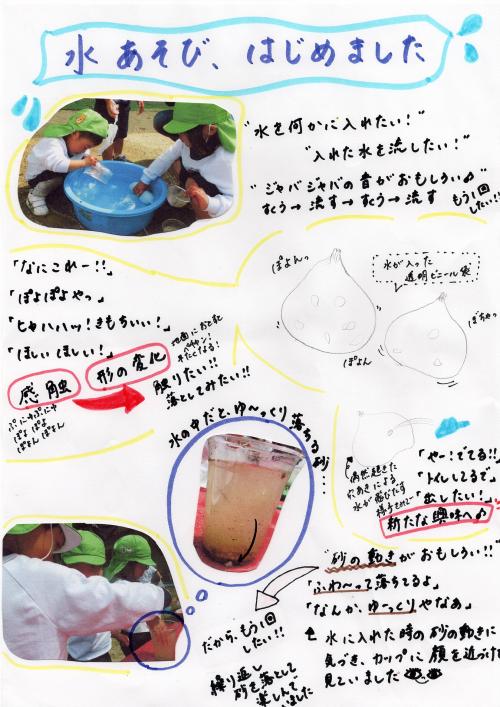 水あそび、はじめました
"水を何かに入れたい!"
"入れた水を流したい!"
"ジャバジャバの音がおもしろい♪
すくう→流す→すくう→流す
もう1回
したい!!
「なにこれー!!」
「ぽよぽよやっ」
「ヒャハハッ!きもちいい!」
「ほしいほしい!」
ぽよんっ
水が入った
透明ビニール袋
ぽよん
ぽちゃっ
感触
ぷにゅぷにゅ
ぽよぽよ
ぽよんぽよん
形の変化
地面におとすと
ペタンッ!
平たくなる!
触りたい!!
落としてみたい!!
水の中だとゆ〜っくり落ちる砂...
偶然起きた
穴あきによる
水が飛びだす
様子をみて
「やー!でてる!!」
「トイレしてるで」
「出したい!」
新たな興味へ♪
"砂の動きがおもしろい!!"
「ふわ〜って落ちてるよ」
「なんか、ゆっくりやなぁ」
水に入れた時の砂の動きに
気づき、カップに顔を近づけて
見ていました
だから、もう1回
したい!!
繰り返し
砂を落として
楽しんで
いました